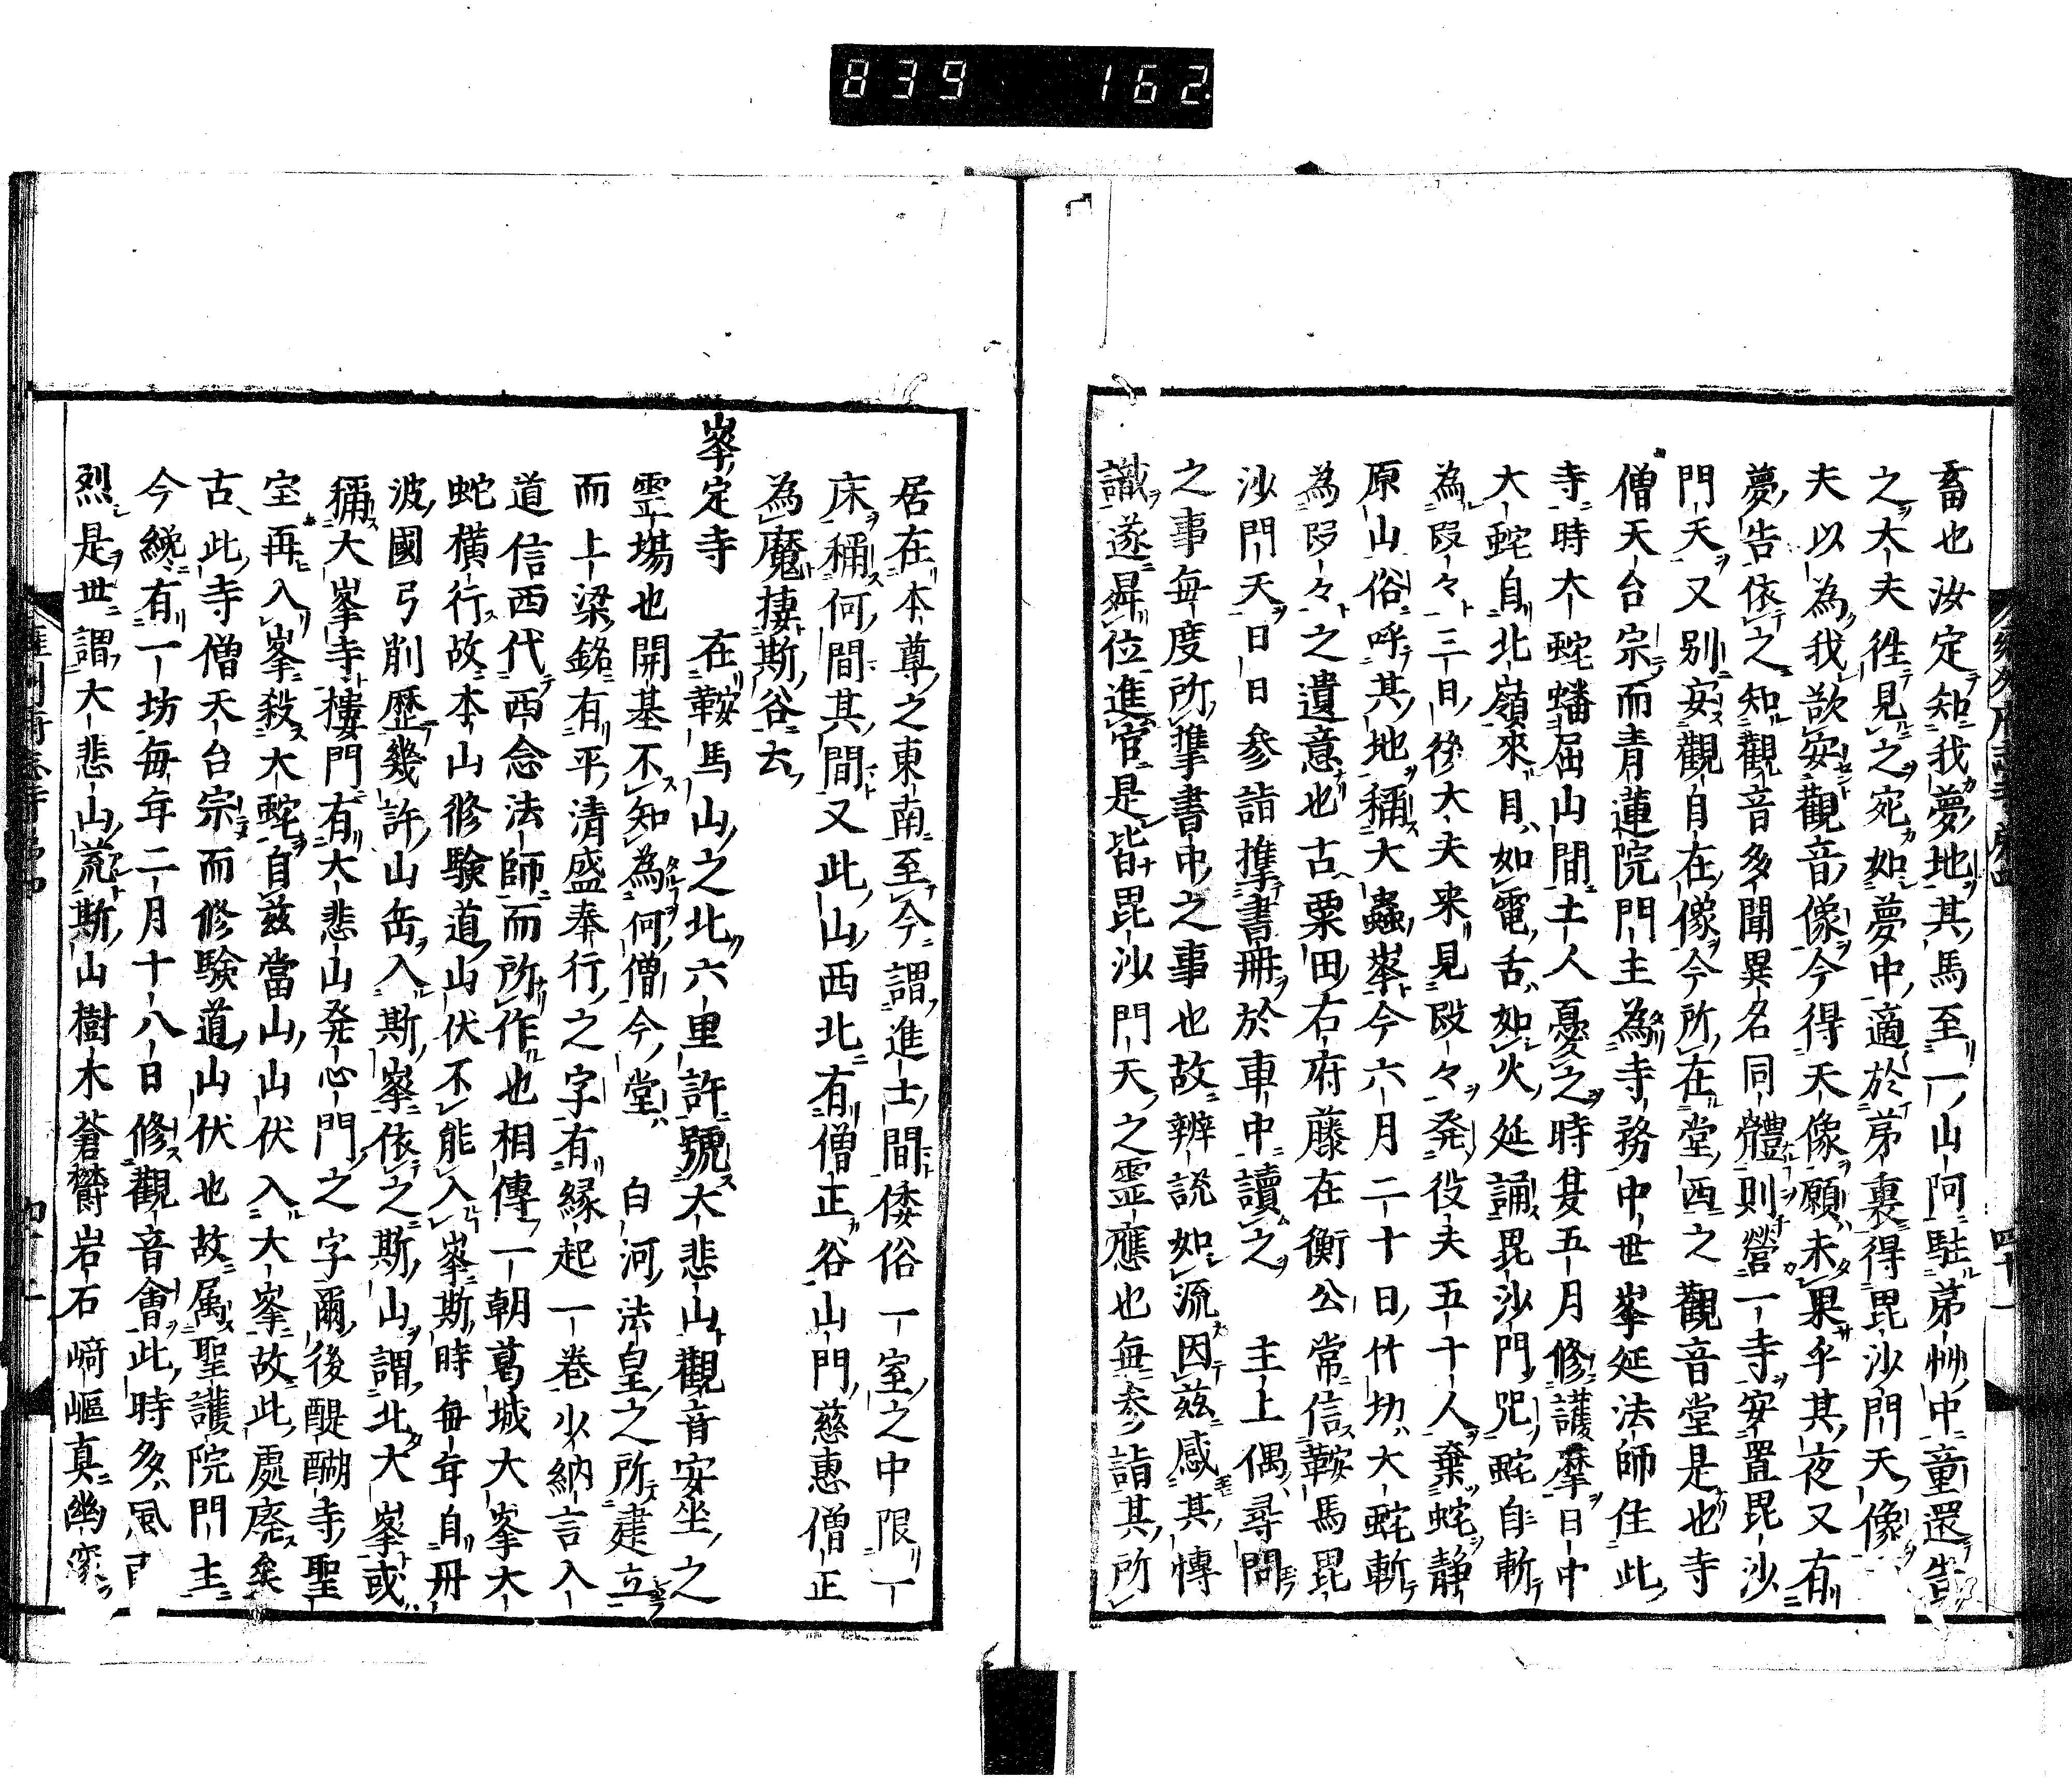 839 162
畜也汝定知我夢地其馬至一山阿駐茀艸中童還告
之大夫徃見之宛如夢中適於茀裏得毘沙門天像
夫以為我欲安觀音像今得天像願未果乎其夜又有
夢告依之知觀音多聞異名同體則營一寺安置毘沙
門天又別安觀自在像今所在堂西之觀音堂是也寺
僧天台宗而青蓮院門主為寺務中世峯延法師住此
寺時大蛇蟠屈山間土人憂之時夏五月修護摩日中
大蛇自北嶺來目如電舌如火延誦毘沙門咒蛇自斬
為段々三日後大夫来見段々発役夫五十人棄蛇靜
原山俗呼其地稱大蟲峯今六月二十日竹切大蛇斬
為段々之遺意也古粟田右府藤在衡公常信鞍馬毘
沙門天日日參詣携書冊於車中讀之 主上偶尋問
之事毎度所携書中之事也故辨説如流因茲感其博
識遂昇位進官是皆毘沙門天之霊應也毎參詣其所
居在本尊之東南至今謂進士間倭俗一室之中限一
床稱何間其間又此山西北有僧正谷山門慈惠僧正
為魔捿斯谷云
峯定寺 在鞍馬山之北六里許號大悲山觀音安坐之
霊塲也開基不知為何僧今堂 白河法皇之所建立
而上梁銘有平清盛奉行之字有縁起一巻少納言入
道信西代西念法師而所作也相傳一朝葛城大峯大
蛇横行故本山修験道山伏不能入峯斯時毎年自丹
波國弓削歴幾許山岳入斯峯依之斯山謂北大峯或
稱大峯寺樓門有大悲山発心門之字爾後醍醐寺聖
宝再入峯殺大蛇自茲當山山伏入大峯故此處廃矣
古此寺僧天台宗而修験道山伏也故属聖護院門主
今纔有一坊毎年二月十八日修觀音會此時多風
烈是世謂大悲山荒斯山樹木蒼欝岩石﨑嶇真幽